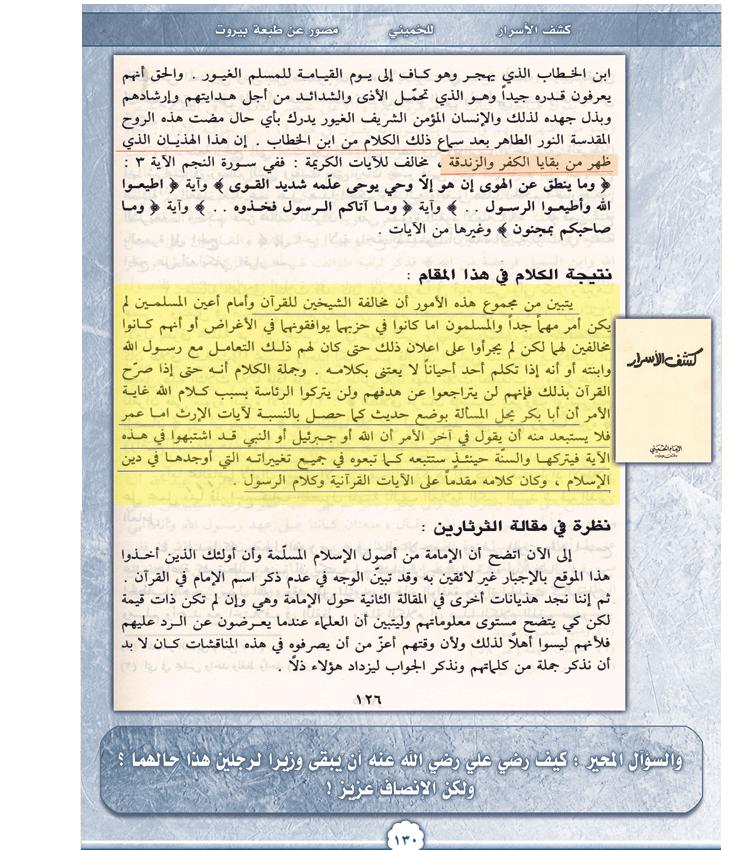 كشف الأسرار للخميني مصور عن طبعة بيروت
ابن الخطاب الذي يهجر وهو كاف إلى يوم القيامة للمسلم الغيور . والحق أنهم
يعرفون قدره جيداً وهو الذي تحمّل الأذى والشدائد من أجل هدايتهم وإرشادهم
وبذل جهده لذلك والإنسان المؤمن الشريف الغيور يدرك بأي حال مضت هذه الروح
المقدسة النور الطاهر بعد سماع ذلك الكلام من ابن الخطاب . إن هذا الهذيان الذي
ظهر من بقايا الكفر والزندقة ، مخالف للآيات الكريمة : ففي سورة النجم الآية ٣ :
﴿ وما ينطق عن الهوى إن هو إلّا وحي يوحى علّمه شديد القوى ﴾ وآية ﴿ اطيعوا
الله وأطيعوا الرسول . . ﴾ وآية ﴿ وما آتاكم الرسول فخذوه . . ﴾ وآية ﴿ وما
صاحبكم بمجنون ﴾ وغيرها من الآيات .
نتيجة الكلام في هذا المقام :
يتبين من مجموع هذه الأمور أن مخالفة الشيخين للقرآن وأمام أعين المسلمين لم
يكن أمر مهماً جداً والمسلمون اما كانوا في حزبهما يوافقونهما في الأغراض أو أنهم كانوا
مخالفين لهما لكن لم يجرأوا على اعلان ذلك حتى كان لهم ذلك التعامل مع رسول الله
وابنته أو أنه إذا تكلم أحد أحياناً لا يعتنى بكلامه . وجملة الكلام أنه حتى إذا صرّح
القرآن بذلك فإنهم لن يتراجعوا عن هدفهم ولن يتركوا الرئاسة بسبب كلام الله غاية
الأمر أن أبا بكر يحل المسألة بوضع حديث كما حصل بالنسبة لآيات الإرث اما عمر
فلا يستبعد منه أن يقول في آخر الأمر أن الله أو جبرئيل أو النبي قد اشتبهوا في هذه
الآية فيتركها والسنّة حينئذٍ ستتبعه كما تبعوه في جميع تغييراته التي أوجدها في دين
الإسلام ، وكان كلامه مقدماً على الآيات القرآنية وكلام الرسول .
كشف الأسرار
الإمام الخميني
نظرة في مقالة الثرثارين :
إلى الآن اتضح أن الإمامة من أصول الإسلام المسلّمة وأن أولئك الذين أخذوا
هذا الموقع بالإجبار غير لائقين به وقد تبيّن الوجه في عدم ذكر اسم الإمام في القرآن .
ثم إننا نجد هذيانات أخرى في المقالة الثانية حول الإمامة وهي وإن لم تكن ذات قيمة
لكن كي يتضح مستوى معلوماتهم وليتبين أن العلماء عندما يعرضون عن الرد عليهم
فلأنهم ليسوا أهلًا لذلك ولأن وقتهم أعزّ من أن يصرفوه في هذه المناقشات كان لا بد
أن نذكر جملة من كلماتهم ونذكر الجواب ليزداد هؤلاء ذلًا .
١٢٦
والسؤال المحير : كيف رضي علي رضي الله عنه أن يبقى وزيرا لرجلين هذا حالهما ؟
ولكن الإنصاف عزيز !
١٣٠